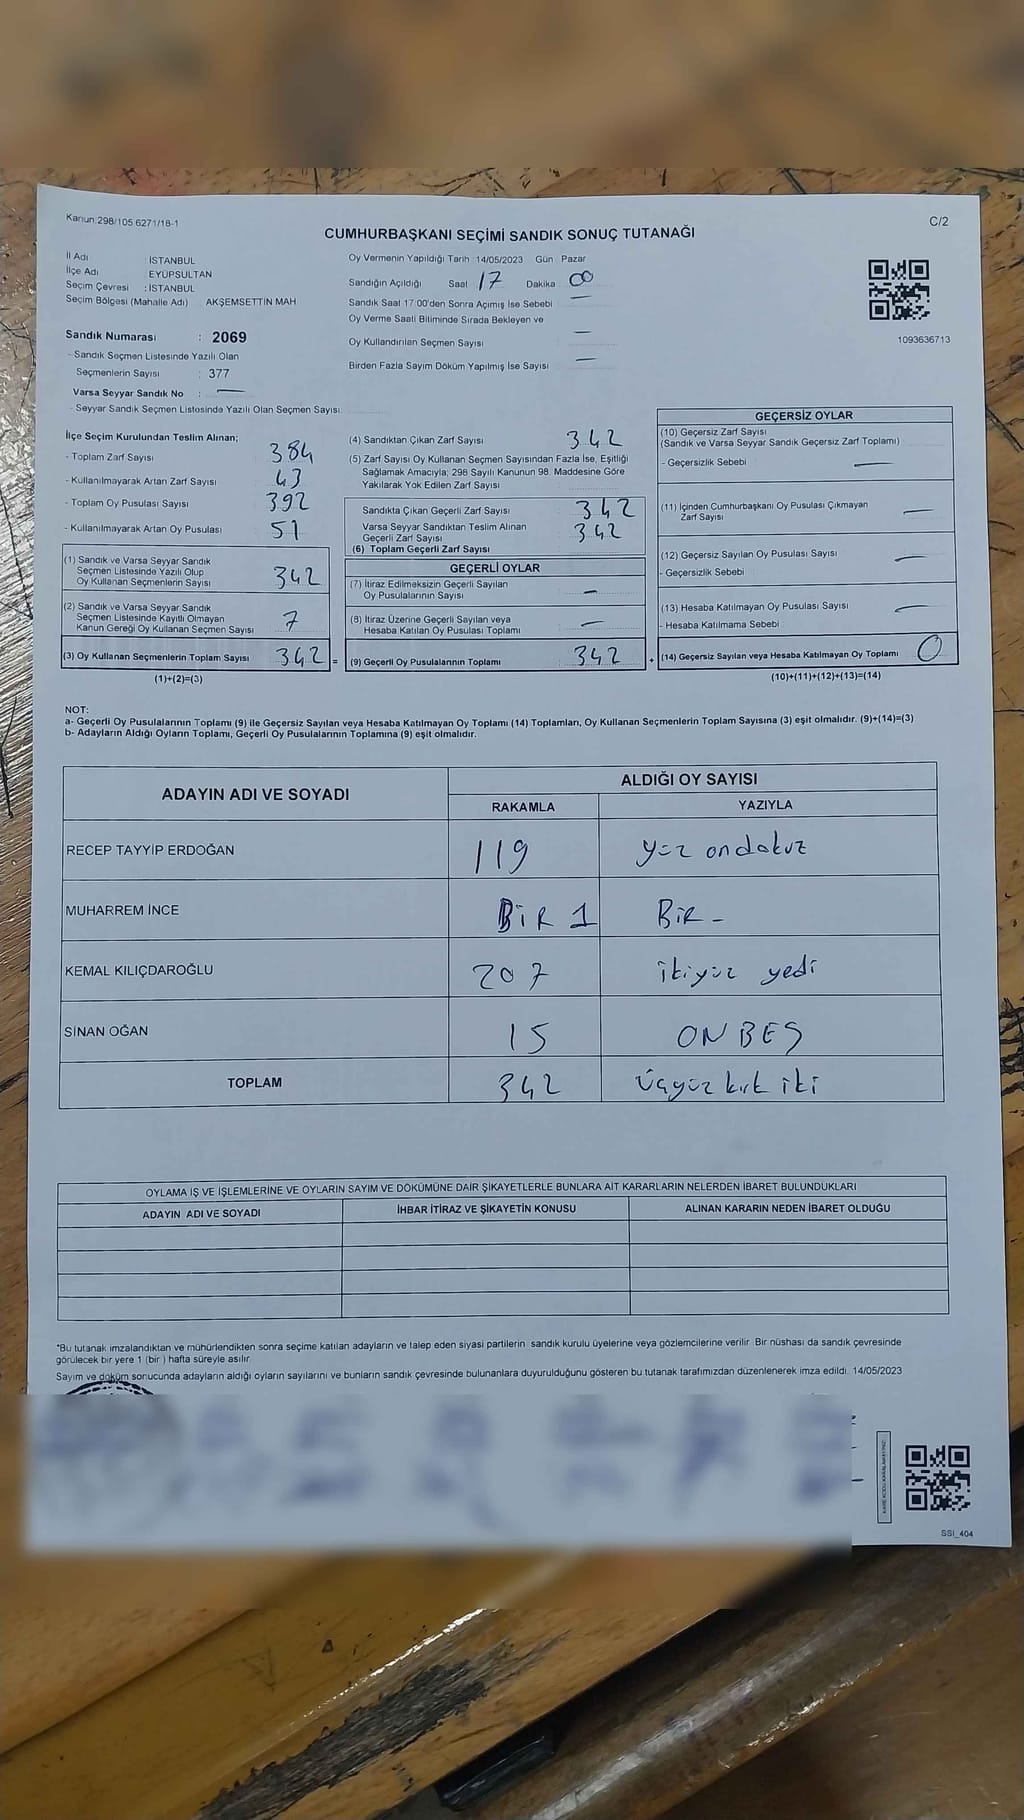 Kanun:298/105 6271/18-1
C/2
CUMHURBAŞKANI SEÇİMİ SANDIK SONUÇ TUTANAĞI
İl Adı : İSTANBUL
İlçe Adı EYÜPSULTAN
Seçim Çevresi : İSTANBUL
Seçim Bölgesi (Mahalle Adı) AKŞEMSETTİN MAH
Sandık Numarası : 2069
- Sandık Seçmen Listesinde Yazılı Olan
Seçmenlerin Sayısı : 377
Varsa Seyyar Sandık No : —
- Seyyar Sandık Seçmen Listesinde Yazılı Olan Seçmen Sayısı:
Oy Vermenin Yapıldığı Tarih 14/05/2023 Gün Pazar
Sandığın Açıldığı Saat 17 Dakika 00
Sandık Saat 17:00'den Sonra Açımış İse Sebebi —
Oy Verme Saati Bitiminde Sırada Bekleyen ve
Oy Kullandırılan Seçmen Sayısı —
Birden Fazla Sayım Döküm Yapılmış İse Sayısı —
1093636713
İlçe Seçim Kurulundan Teslim Alınan;
- Toplam Zarf Sayısı 384
- Kullanılmayarak Artan Zarf Sayısı 43
- Toplam Oy Pusulası Sayısı 392
- Kullanılmayarak Artan Oy Pusulası 51
(1) Sandık ve Varsa Seyyar Sandık
Seçmen Listesinde Yazılı Olup
Oy Kullanan Seçmenlerin Sayısı 342
(2) Sandık ve Varsa Seyyar Sandık
Seçmen Listesinde Kayıtlı Olmayan
Kanun Gereği Oy Kullanan Seçmen Sayısı 7
(3) Oy Kullanan Seçmenlerin Toplam Sayısı 342 =
(1)+(2)=(3)
(4) Sandıktan Çıkan Zarf Sayısı 342
(5) Zarf Sayısı Oy Kullanan Seçmen Sayısından Fazla İse, Eşitliği
Sağlamak Amacıyla; 298 Sayılı Kanunun 98. Maddesine Göre
Yakılarak Yok Edilen Zarf Sayısı
Sandıkta Çıkan Geçerli Zarf Sayısı 342
Varsa Seyyar Sandıktan Teslim Alınan
Geçerli Zarf Sayısı 342
(6) Toplam Geçerli Zarf Sayısı
GEÇERLİ OYLAR
(7) İtiraz Edilmeksizin Geçerli Sayılan
Oy Pusulalarının Sayısı —
(8) İtiraz Üzerine Geçerli Sayılan veya
Hesaba Katılan Oy Pusulası Toplamı —
(9) Geçerli Oy Pusulalarının Toplamı 342 +
GEÇERSİZ OYLAR
(10) Geçersiz Zarf Sayısı
(Sandık ve Varsa Seyyar Sandık Geçersiz Zarf Toplamı)
- Geçersizlik Sebebi —
(11) İçinden Cumhurbaşkanı Oy Pusulası Çıkmayan
Zarf Sayısı —
(12) Geçersiz Sayılan Oy Pusulası Sayısı —
- Geçersizlik Sebebi
(13) Hesaba Katılmayan Oy Pusulası Sayısı —
- Hesaba Katılmama Sebebi
(14) Geçersiz Sayılan veya Hesaba Katılmayan Oy Toplamı 0
(10)+(11)+(12)+(13)=(14)
NOT:
a- Geçerli Oy Pusulalarının Toplamı (9) ile Geçersiz Sayılan veya Hesaba Katılmayan Oy Toplamı (14) Toplamları, Oy Kullanan Seçmenlerin Toplam Sayısına (3) eşit olmalıdır. (9)+(14)=(3)
b- Adayların Aldığı Oyların Toplamı, Geçerli Oy Pusulalarının Toplamına (9) eşit olmalıdır.
ADAYIN ADI VE SOYADI ALDIĞI OY SAYISI
RAKAMLA YAZIYLA
RECEP TAYYİP ERDOĞAN 119 yüz ondokuz
MUHARREM İNCE BİR 1 BİR -
KEMAL KILIÇDAROĞLU 207 ikiyüz yedi
SİNAN OĞAN 15 ONBEŞ
TOPLAM 342 Üçyüz kırk iki
OYLAMA İŞ VE İŞLEMLERİNE VE OYLARIN SAYIM VE DÖKÜMÜNE DAİR ŞİKAYETLERLE BUNLARA AİT KARARLARIN NELERDEN İBARET BULUNDUKLARI
ADAYIN ADI VE SOYADI İHBAR İTİRAZ VE ŞİKAYETİN KONUSU ALINAN KARARIN NEDEN İBARET OLDUĞU
*Bu tutanak imzalandıktan ve mühürlendikten sonra seçime katılan adayların ve talep eden siyasi partilerin sandık kurulu üyelerine veya gözlemcilerine verilir. Bir nüshası da sandık çevresinde
görülecek bir yere 1 (bir ) hafta süreyle asılır.
Sayım ve döküm sonucunda adayların aldığı oyların sayılarını ve bunların sandık çevresinde bulunanlara duyurulduğunu gösteren bu tutanak tarafımızdan düzenlenerek imza edildi. 14/05/2023
SSI_404